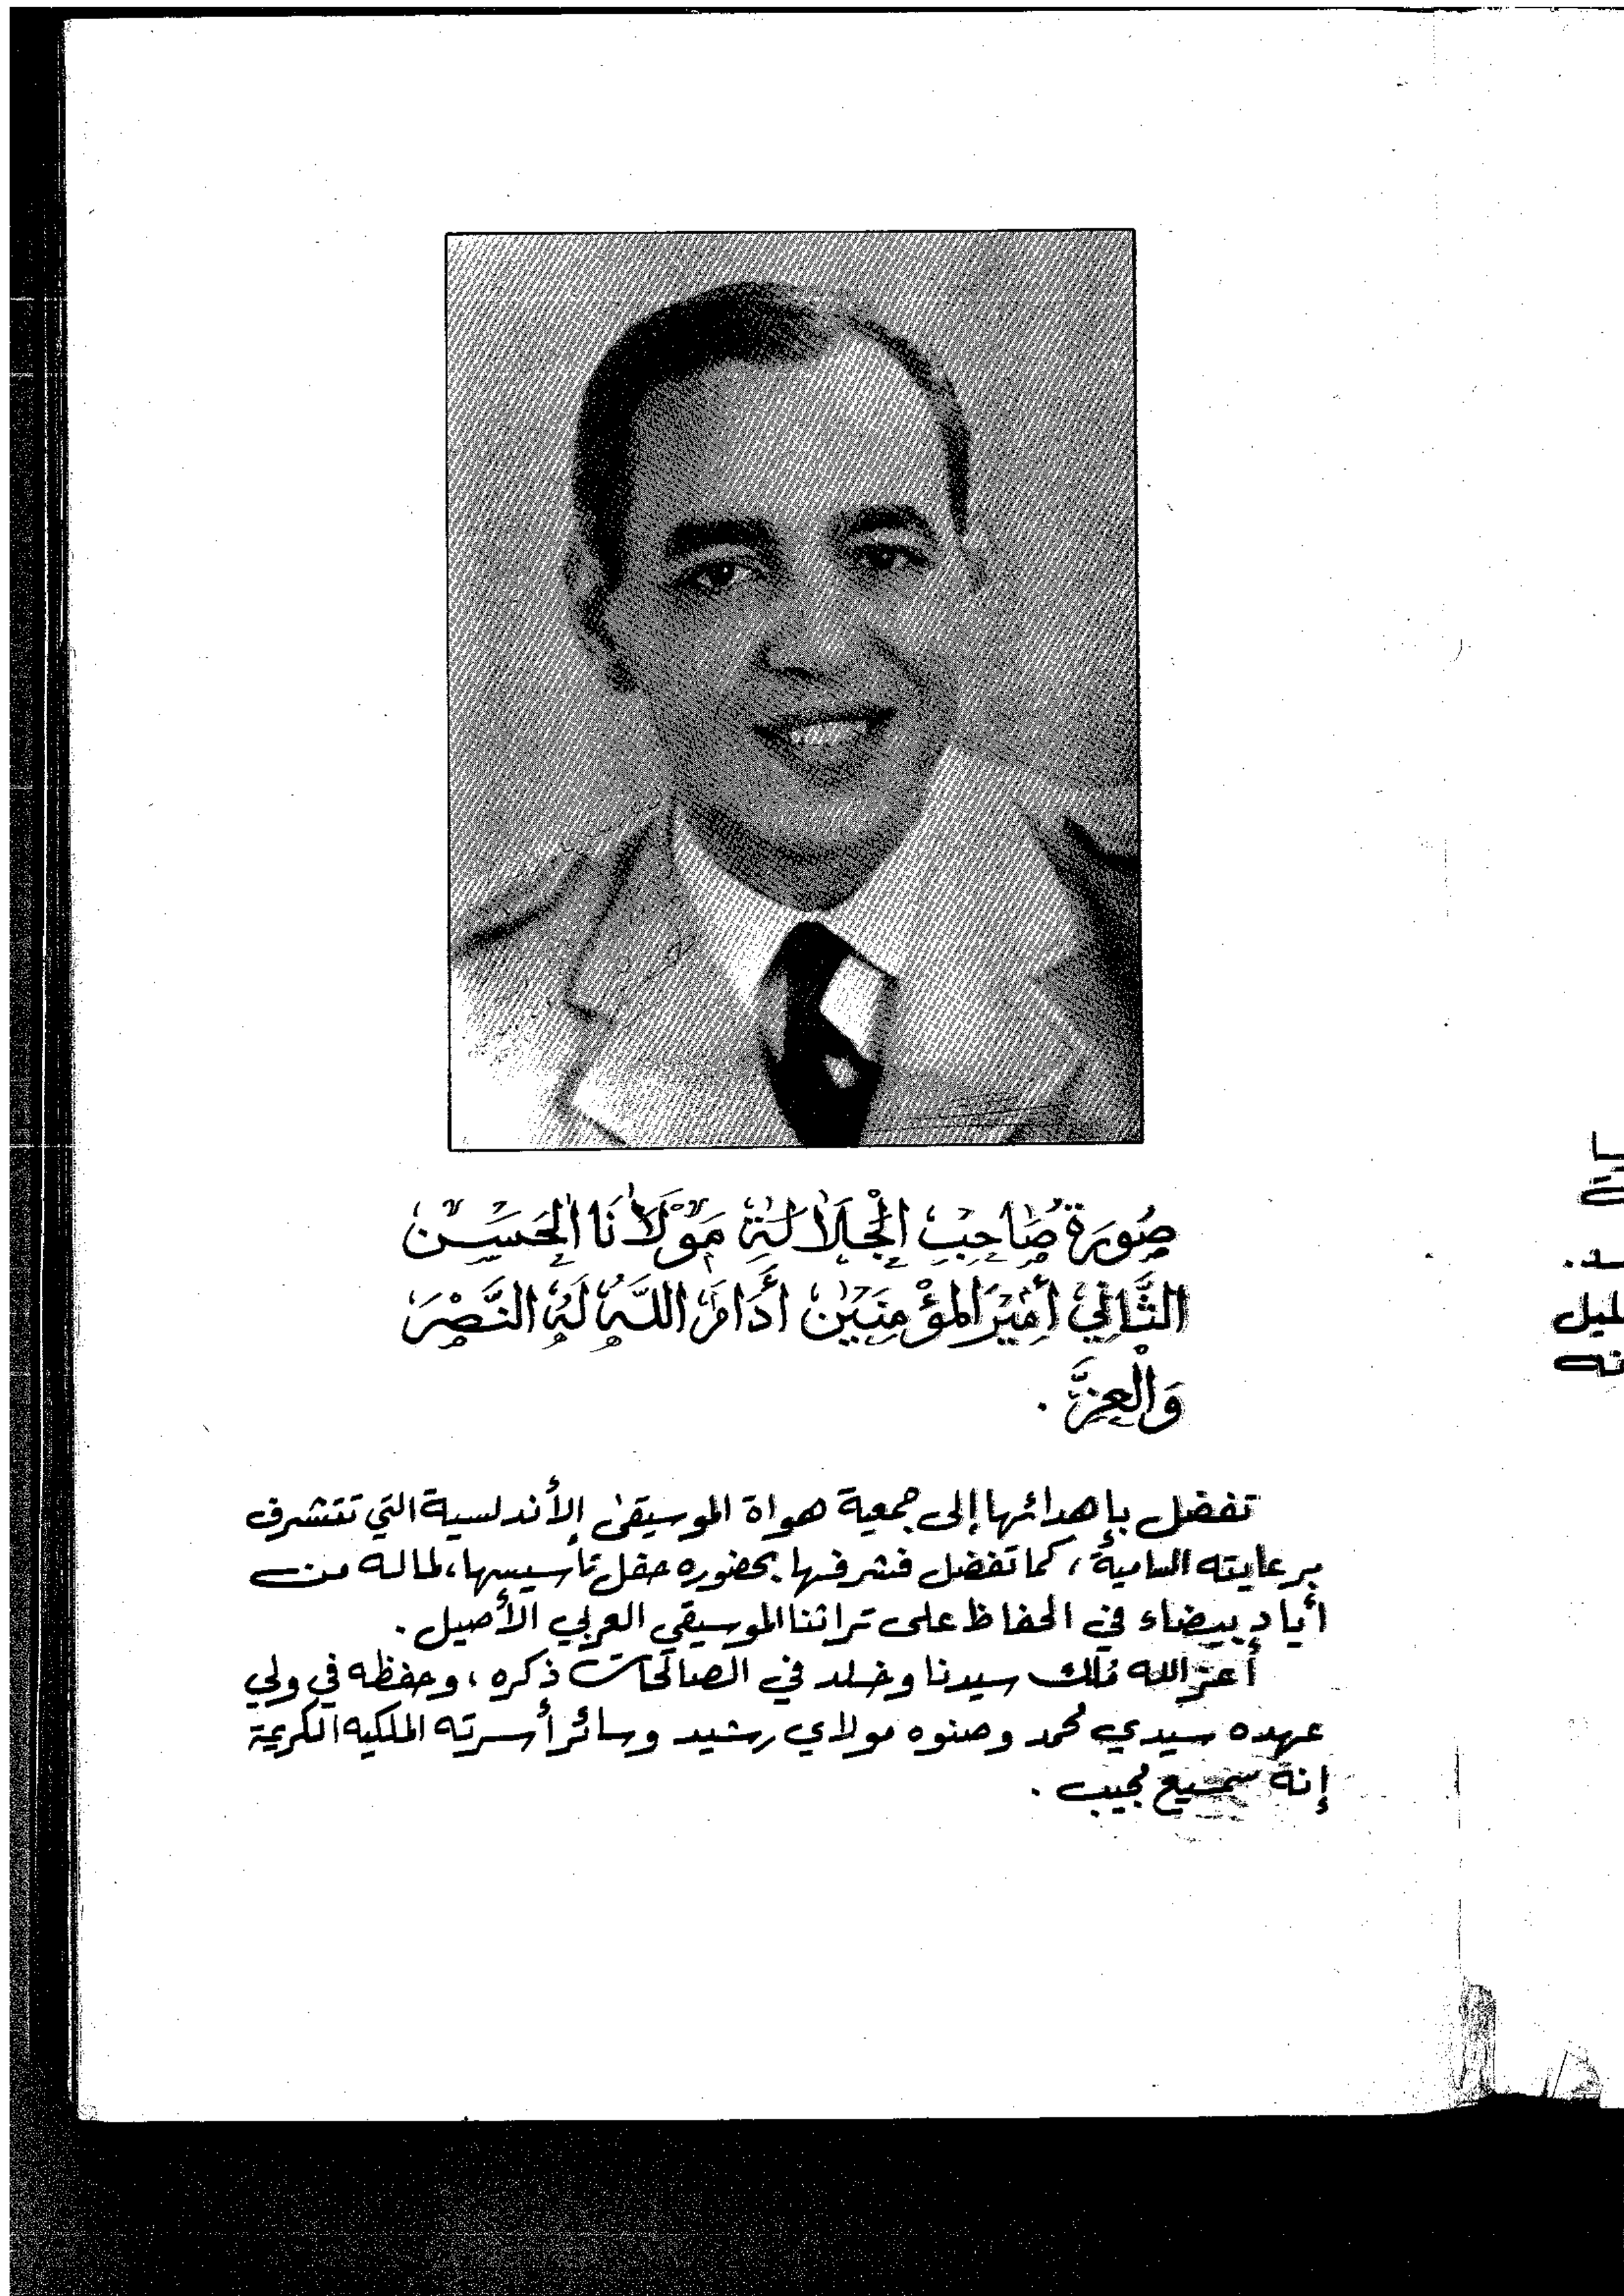 صُورَة صَاحِبِ الْجَلَالَةِ مَوْلَانَا الحَسَن
الثَّانِي أَمِيرَ المؤْمِنِينَ أَدَامَ اللَّهُ لَهُ النَّصْرَ
وَالْعِزَّ .
تفضل بإهدائها إلى جمعية هواة الموسيقى الأندلسية التي تتشرف
برعايته السامية ، كما تفضل فشرفها بحضوره حفل تأسيسها، لما له من
أياد بيضاء في الحفاظ على تراثنا الموسيقي العربي الأصيل .
أعز الله ملك سيدنا وخلد في الصالحات ذكره ، وحفظه في ولي
عهده سيدي محمد وصنوه مولاي رشيد وسائر أسرته الملكيه الكريمة
إنه سميع مجيب .